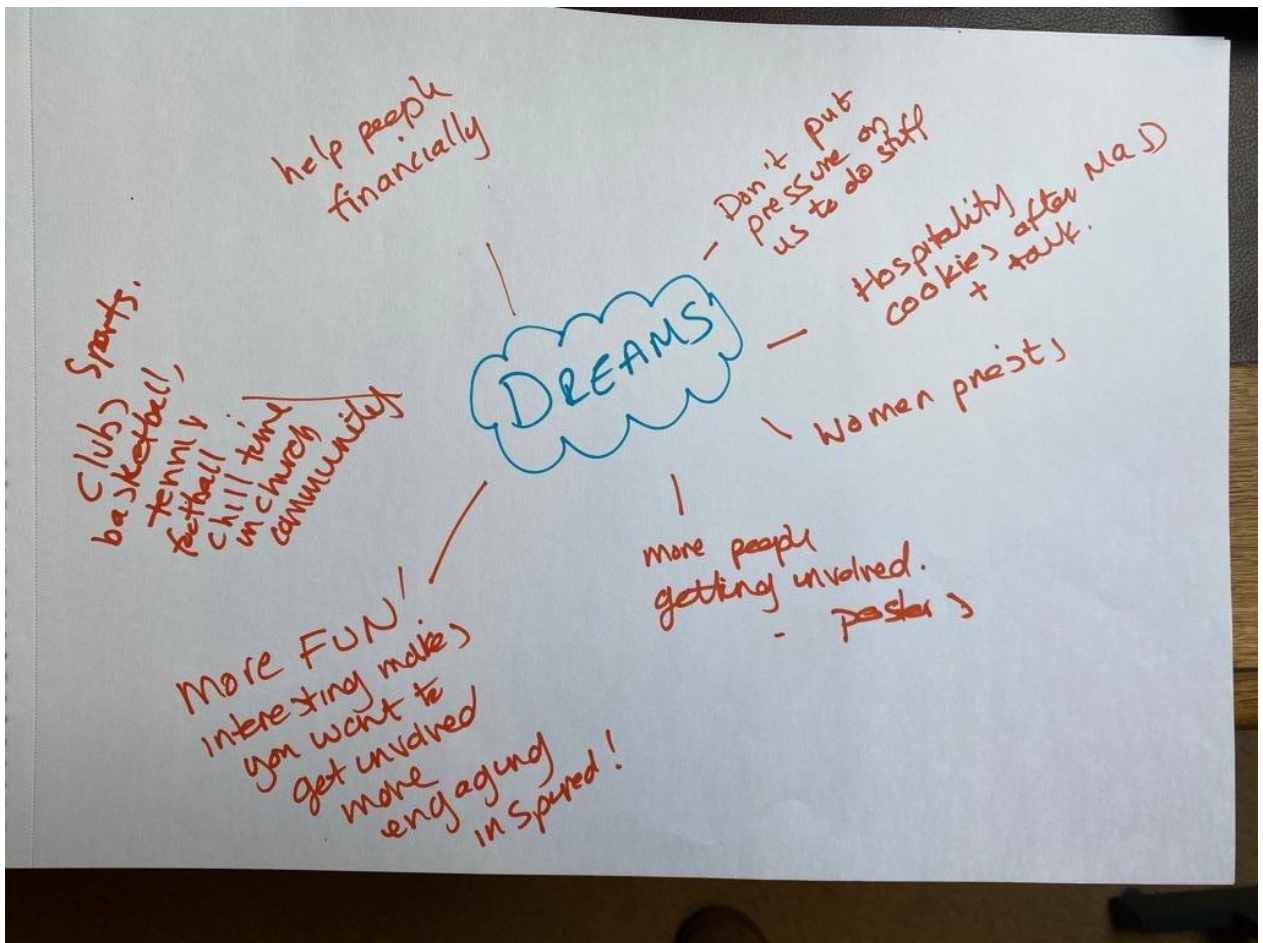 DREAMS
help people
financially
Don't put
pressure on
us to do stuff
Hospitality
cookies after Mass
+ talk.
Women priests
more people
getting involved.
- posters
More FUN!
interesting makes
you want to
get involved
more
engaging
inspired!
Clubs Sports.
basketball,
tennis
football
chill time
in church
community